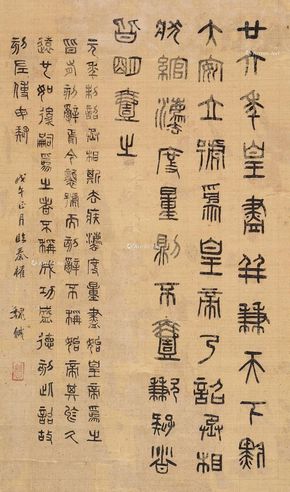 廿六年皇盡并兼天下黔
大安立號為皇帝乃詔丞相
狀綰灋度量則不壹歉疑者
皆明壹之
元年制詔丞相斯去疾灋度量盡始皇帝為之
皆有刻辭焉今襲號而刻辭不稱始帝其於久
遠也如後嗣為之者不稱成功盛德刻此詔故
刻左使毋疑 戊午正月臨秦權 魏戫